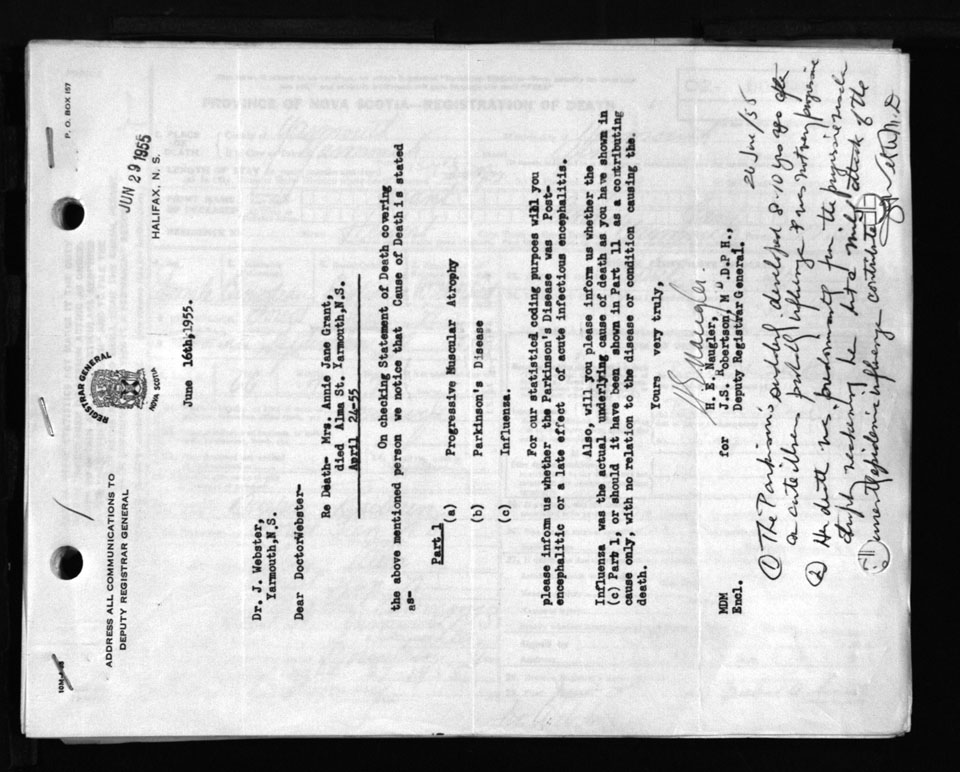 10M-4-55
ADDRESS ALL COMMUNICATIONS TO
DEPUTY REGISTRAR GENERAL
REGISTRAR GENERAL
NOVA SCOTIA
P. O. BOX 157
JUN 29 1955
HALIFAX, N. S.
June 16th, 1955.
Dr. J. Webster,
Yarmouth, N.S.
Dear DoctorWebster-
Re Death- Mrs. Annie Jane Grant,
died Alma St. Yarmouth, N.S.
April 24-55
On checking Statement of Death covering
the above mentioned person we notice that Cause of Death is stated
as-
Part 1
(a) Progressive Muscular Atrophy
(b) Parkinson's Disease
(c) Influenza.
For our statistical coding purposes will you
please inform us whether the Parkinson's Disease was Post-
encephalitic or a late effect of acute infectious encephalitis.
Also, will you please inform us whether the
Influenza was the actual underlying cause of death as you have shown in
(c) Part 1, or should it have been shown in Part 11 as a contributing
cause only, with no relation to the disease or condition causing the
death.
Yours very truly,
H. E. Naugler,
for J.S. Robertson, M.D.P.H.,
Deputy Registrar General.
MDM
Encl.
26 June/55
1 The Parkinson's developed 8-10 yrs ago after
an acute illness probably influenza & was not very progressive
2 Her death was predominantly from the progressive muscular
atrophy
a mild attack of the
epidemic influenza contributing
M.D